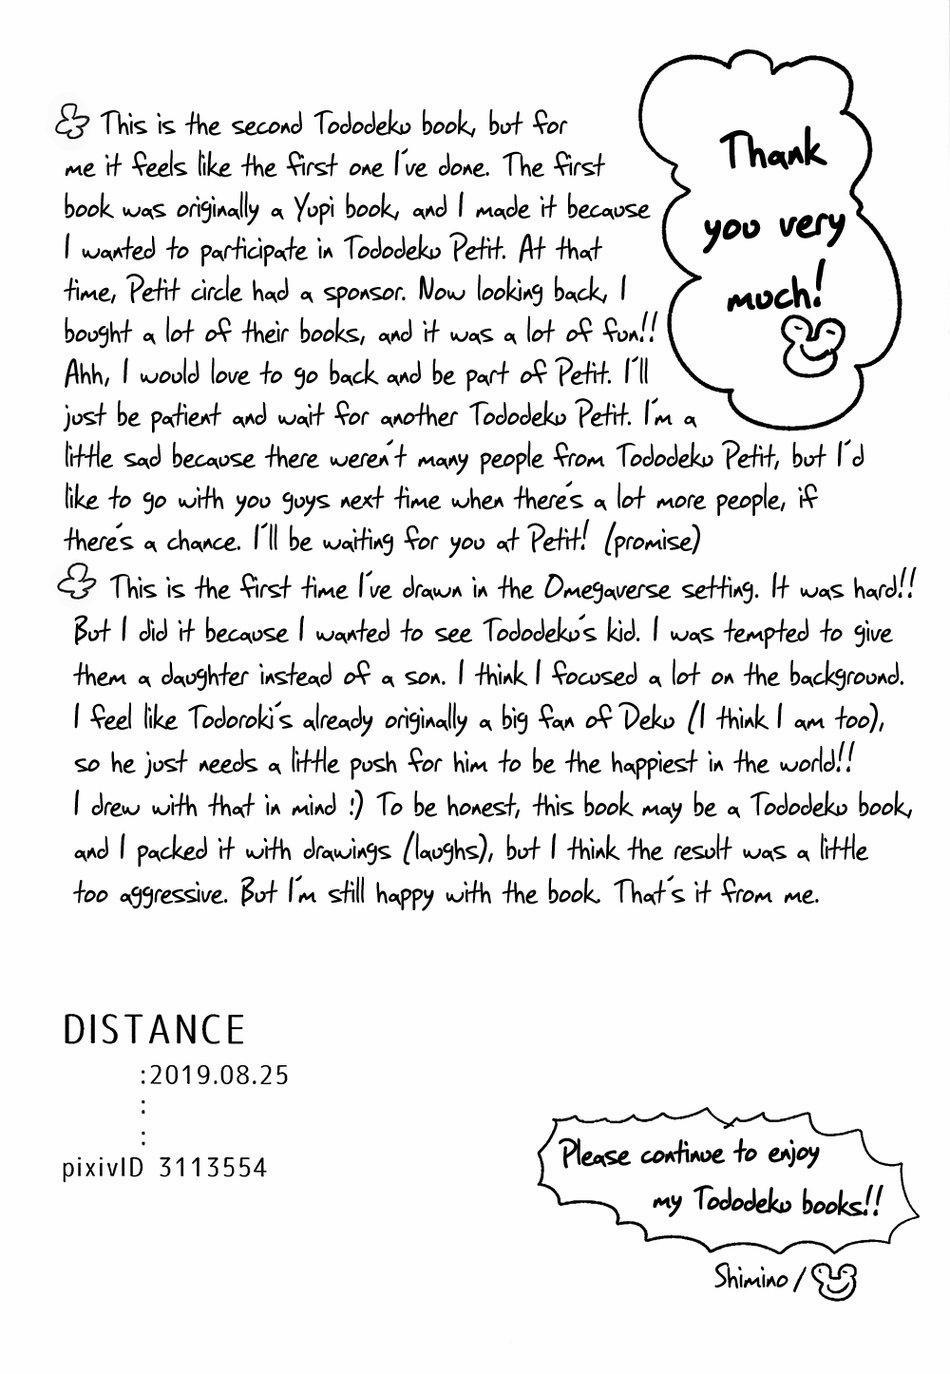 This is the second Tododeku book, but for
me it feels like the first one I've done. The first
book was originally a Yupi book, and I made it because
I wanted to participate in Tododeku Petit. At that
time, Petit circle had a sponsor. Now looking back, I
bought a lot of their books, and it was a lot of fun!!
Ahh, I would love to go back and be part of Petit. I'll
just be patient and wait for another Tododeku Petit. I'm a
little sad because there weren't many people from Tododeku Petit, but I'd
like to go with you guys next time when there's a lot more people, if
there's a chance. I'll be waiting for you at Petit! (promise)
Thank
you very
much!
This is the first time I've drawn in the Omegaverse setting. It was hard!!
But I did it because I wanted to see Tododeku's kid. I was tempted to give
them a daughter instead of a son. I think I focused a lot on the background.
I feel like Todoroki's already originally a big fan of Deku (I think I am too),
so he just needs a little push for him to be the happiest in the world!!
I drew with that in mind :) To be honest, this book may be a Tododeku book,
and I packed it with drawings (laughs), but I think the result was a little
too aggressive. But I'm still happy with the book. That's it from me.
DISTANCE
:2019.08.25
:
:
pixivID 3113554
Please continue to enjoy
my Tododeku books!!
Shimino /